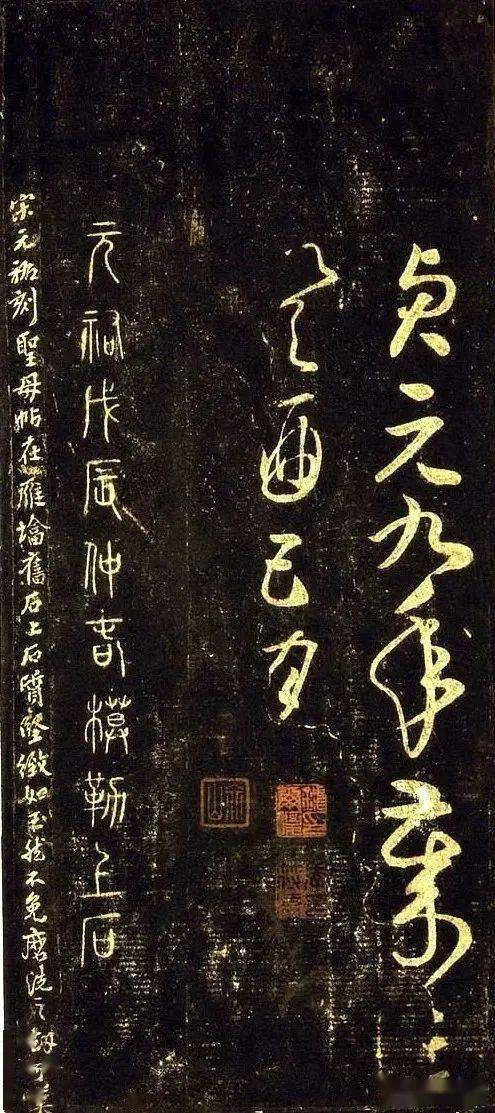 貞元九年歲在
癸酉五月
元祐戊辰仲春模勒上石
宋元祐刻聖母帖在雁塔舊石上石質堅緻如玉然不免磨洗之